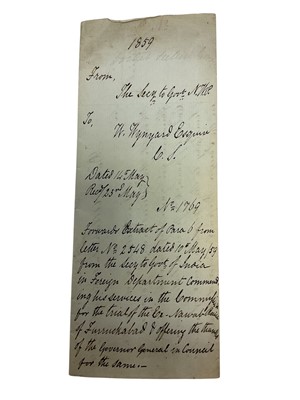 1859
From,
The Secy. to Govt. N.W.P.
To,
W. Wynyard Esquire
C. S.
Dated 14th May
Recd. 23rd May
No. 1769
Forwards Extract of Para 6 from
letter No. 2548 dated 10th May /59
from the Secy. to Govt. of India
in Foreign Department commend
ing his services in the Commn.
for the trial of the Ex-Nawab
of Furruckabad & offering the thanks
of the Governor General in Council
for the same.—